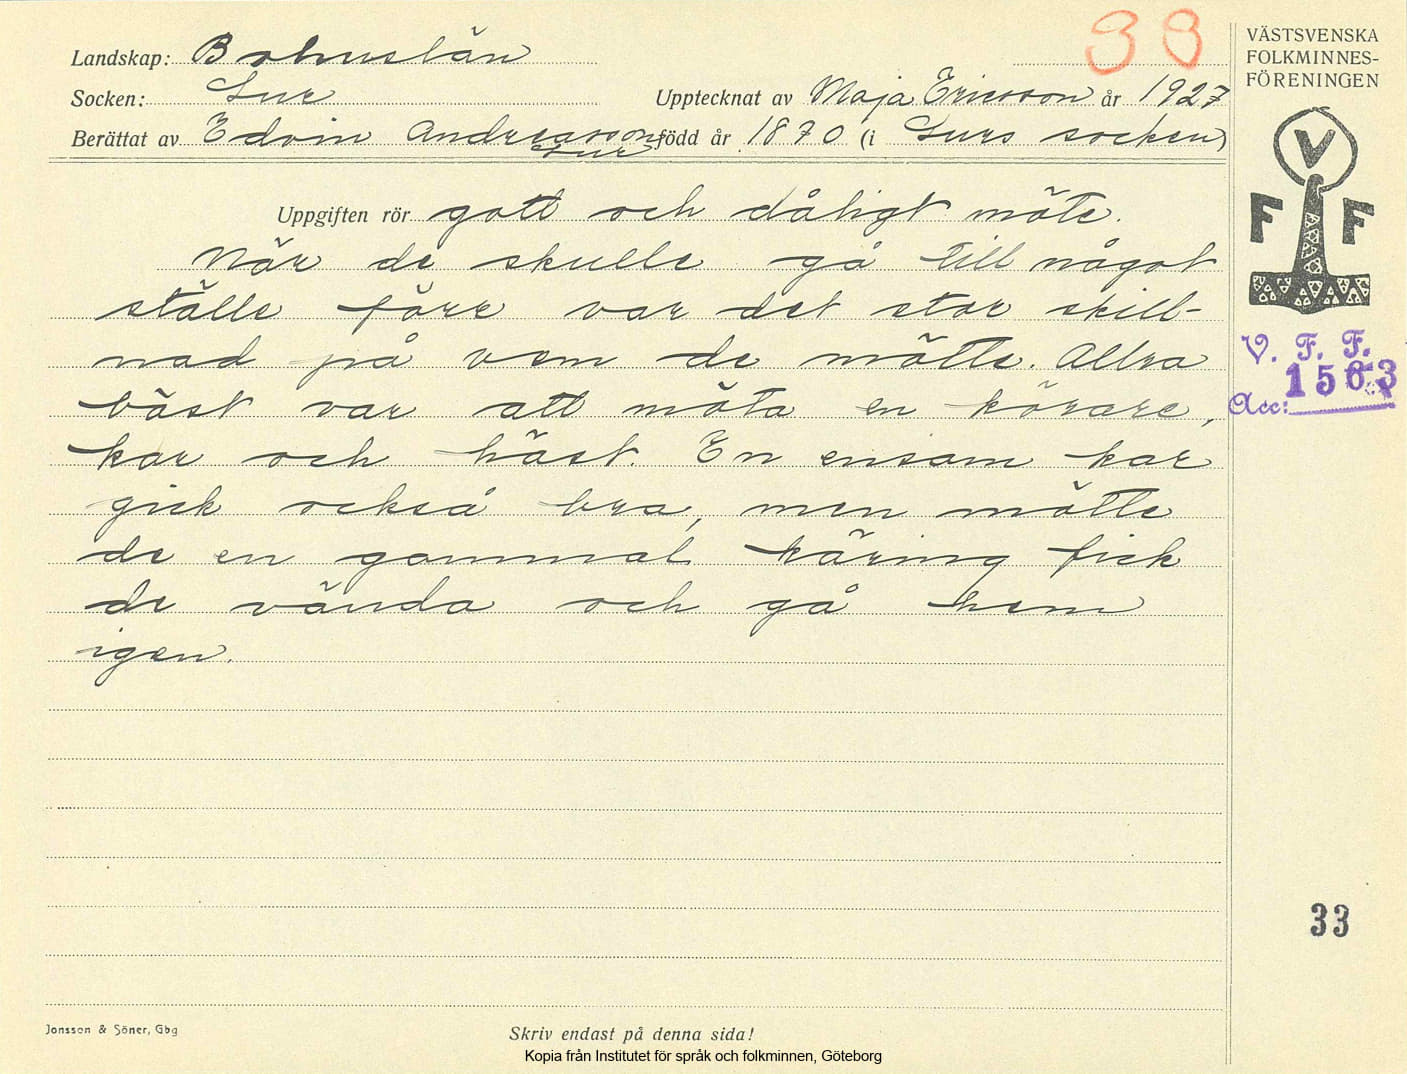 33
Landskap: Bohuslän
Socken: Lur
Upptecknat av Maja Ericsson år 1927
Berättat av Edvin Andreasson, Lur född år 1870 (i Lurs socken)
Uppgiften rör gott och dåligt möte.
När de skulle gå till något
ställe förr var det stor skill-
nad på vem de mötte. Allra
bäst var att möta en körare,
kar och häst. En ensam kar
gick också bra, men mötte
de en gammal käring fick
de vända och gå hem
igen.
VÄSTSVENSKA
FOLKMINNES-
FÖRENINGEN
V
F F
V. F. F.
Acc: 1563
33
Jonsson & Söner, Gbg
Skriv endast på denna sida!
Kopia från Institutet för språk och folkminnen, Göteborg